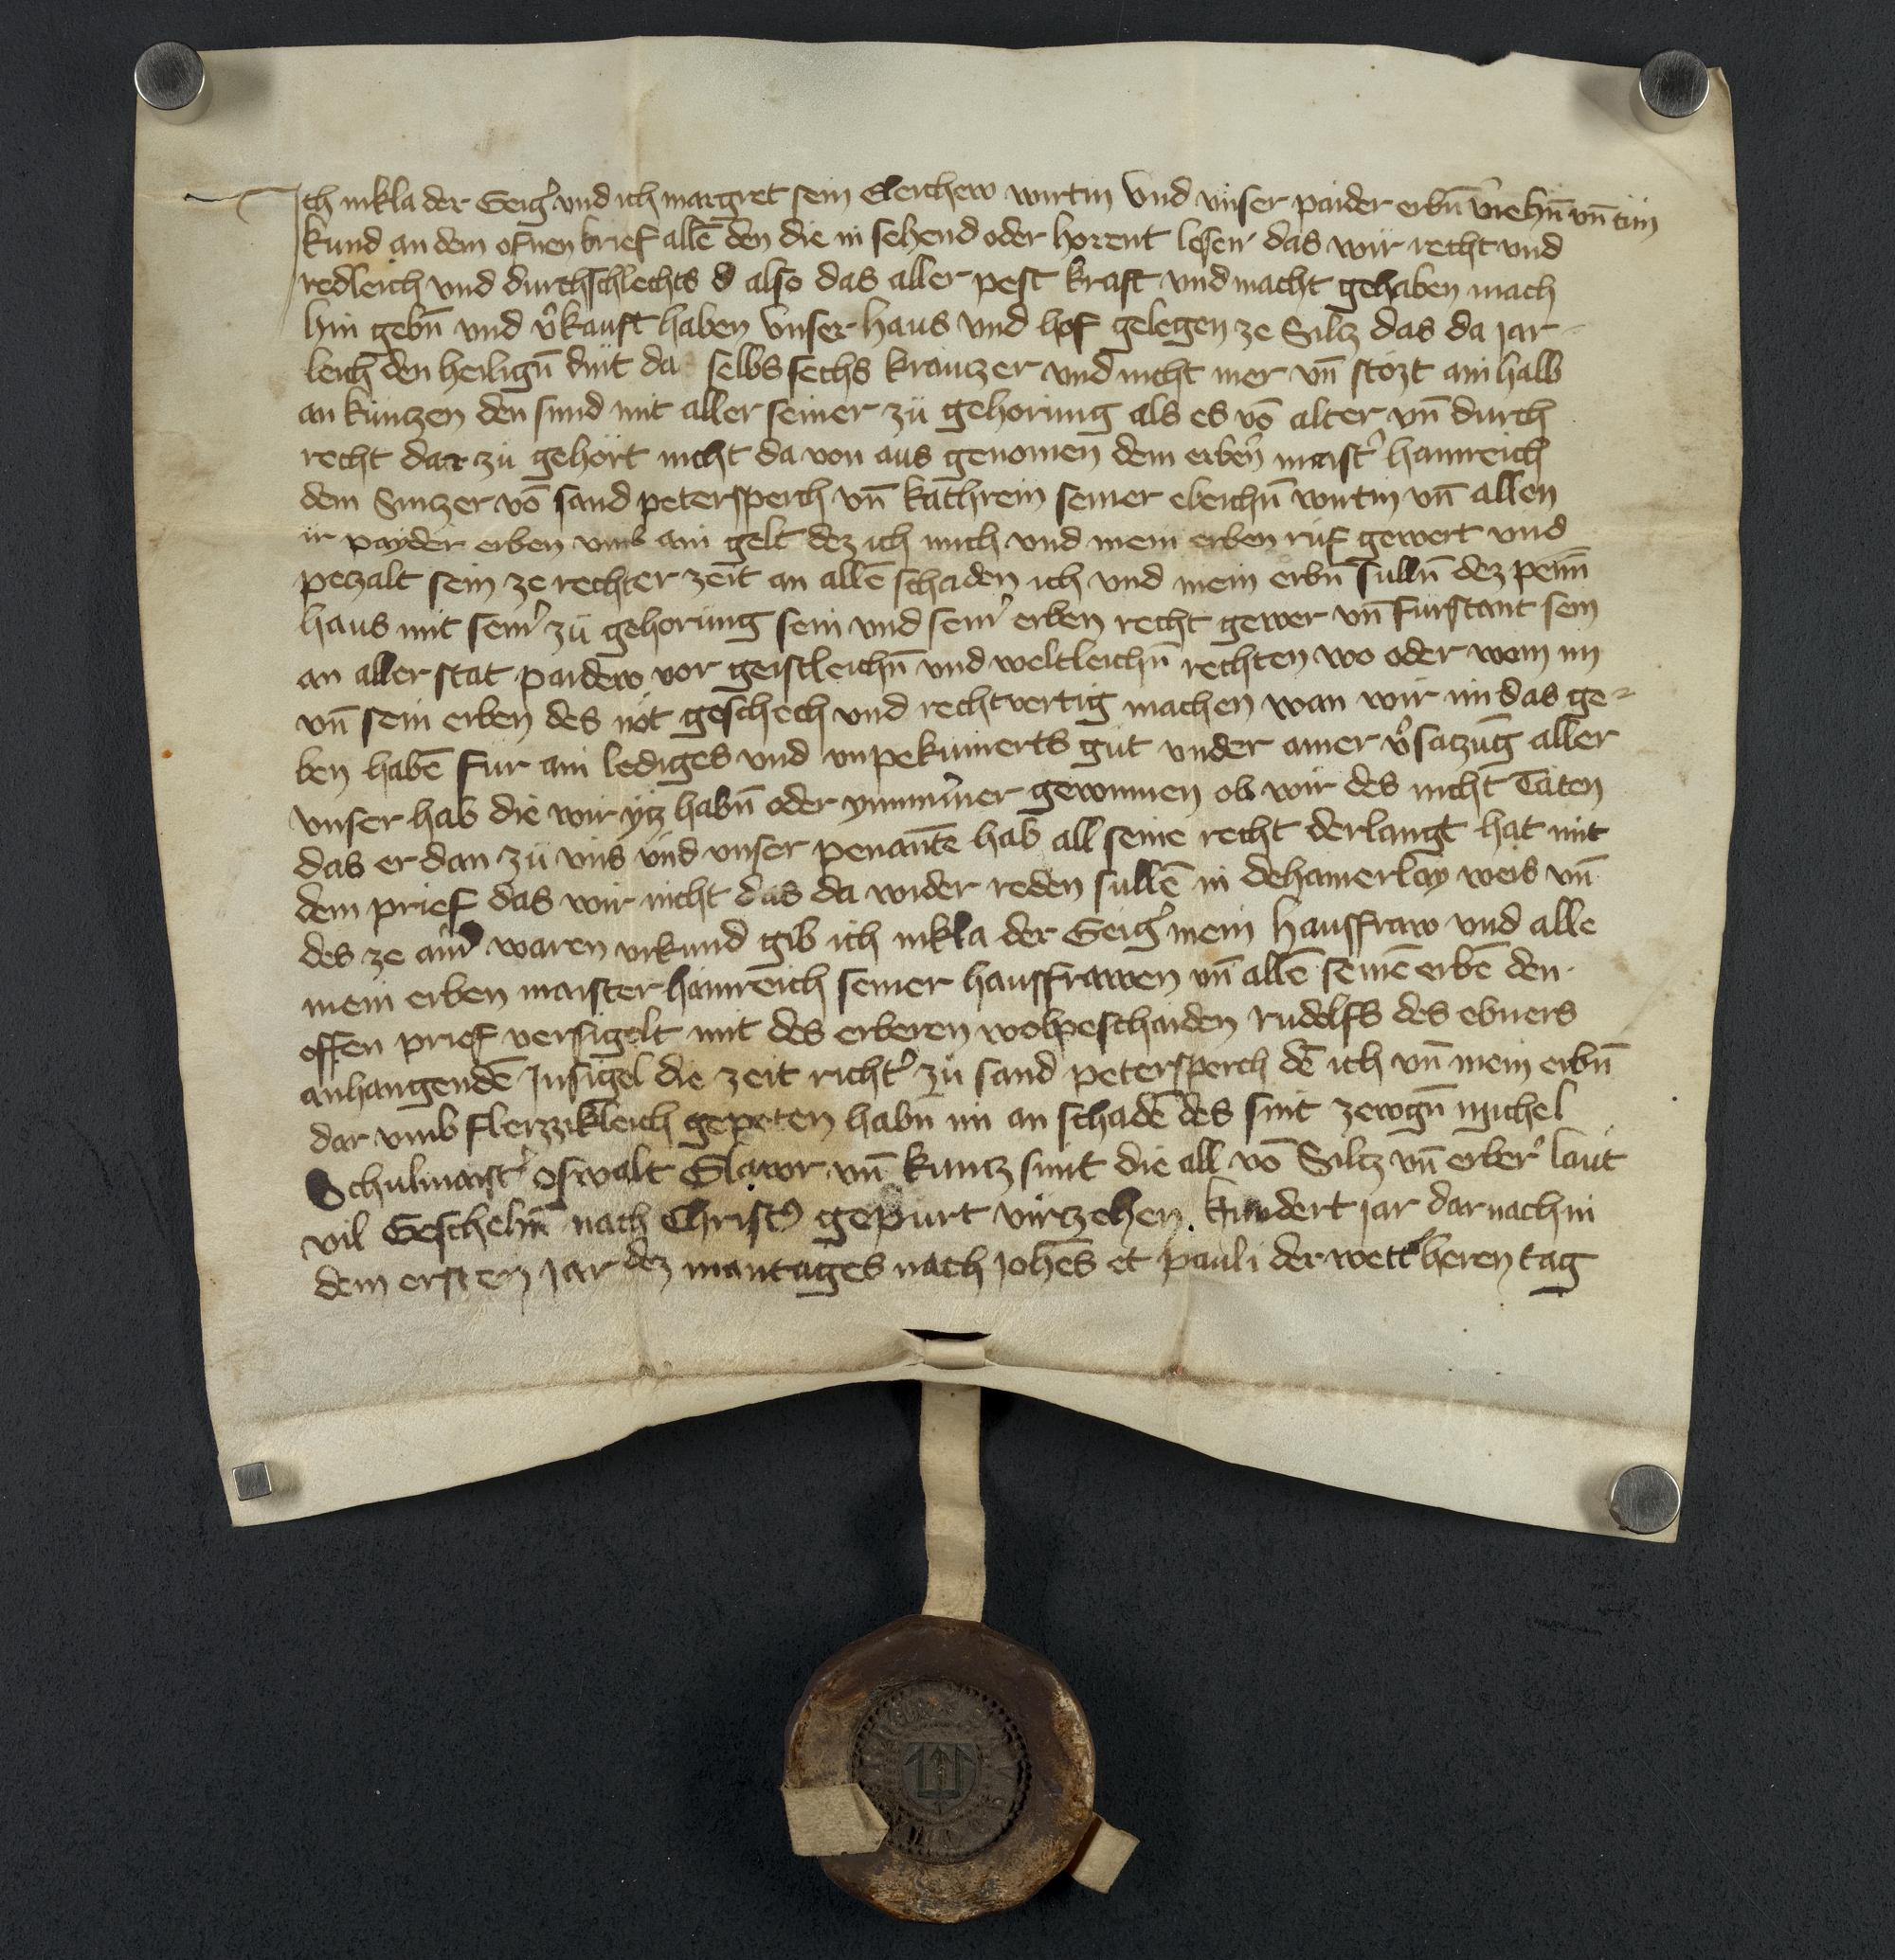 Ich nikla der Geig̉ und ich margret sein Eleichew wirtin Und unser paider erbn̄ v̉iehn̄ vn̄ tün
kund an dem ofnen brief allē den die in sehend oder horent lesen das wir recht und
redleich und durchschlechts also das aller pest kraft und macht gehaben mach
hin gebn̄ und v̉kauft haben Unser haus und hof gelegen ze Silcz das da jar
leich den heilign̄ dint da selbs sechs kräuczer und nicht mer vn̄ stözt ainhalb
an künczen den sund mit aller seiner zü gehorüng als es vō alter vn̄ durch
recht dar zü gehört nicht da von aus genomen dem erbern̉ maist̉ hainreich
dem Sinczer vō sand petersperch vn̄ kathrein seiner eleichn̄ wirtin vn̄ allen
ir payder erben vmb ain gelt dez ich mich und mein erben rüf gewert und
peczalt sein ze rechter zeit an allē schaden ich und mein erbn̄ sulln̄ dez penn̄
haus mit sein̉ zü gehorüng sein und sein̉ erben recht gewer vn̄ fürstant sein
an aller stat paidew vor geistleichn̄ und weltleichn̄ rechten wo oder wenn im
vn̄ sein erben des nöt geschech und rechtvertig machen wan wir im das ge=
ben habē für ain lediges und unpekümerts güt under ainer v̉saczūg aller
unser hab die wir ycz habn̄ oder ymmm̉er gewinnen ob wir des nicht Täten
das er dan zü vns und unser penantē hab all seine recht derlangt hat mit
dem prief das wir nicht das da wider reden sullē in dehainerlay weis vn̄
des ze ain̉ waren urkund gib ich nikla der Geig̉ mein hausfraw und alle
mein erben maister hainreich seiner hausfrawen vn̄ allē seinē erbē den
offen prief versigelt mit des erberen wolpeschaiden rudolfs des ebners
anhangendē Insigel die zeit richt̉ zü sand petersperch dē ich vn̄ mein erbn̄
dar vmb flerzzikleich gepeten habn̄ im an schadē des sint zewgn̄ michel
Schulmaist̉ oswalt Glawr vn̄ kuncz sint die all vō Silcz vn̄ erber̉ laüt
vil Geschehn̄ nach Christ̉ gepürt virczehen hundert jar dar nach in
dem ersten jar dez mantages nach johēs et pauli der wett̉heren tag